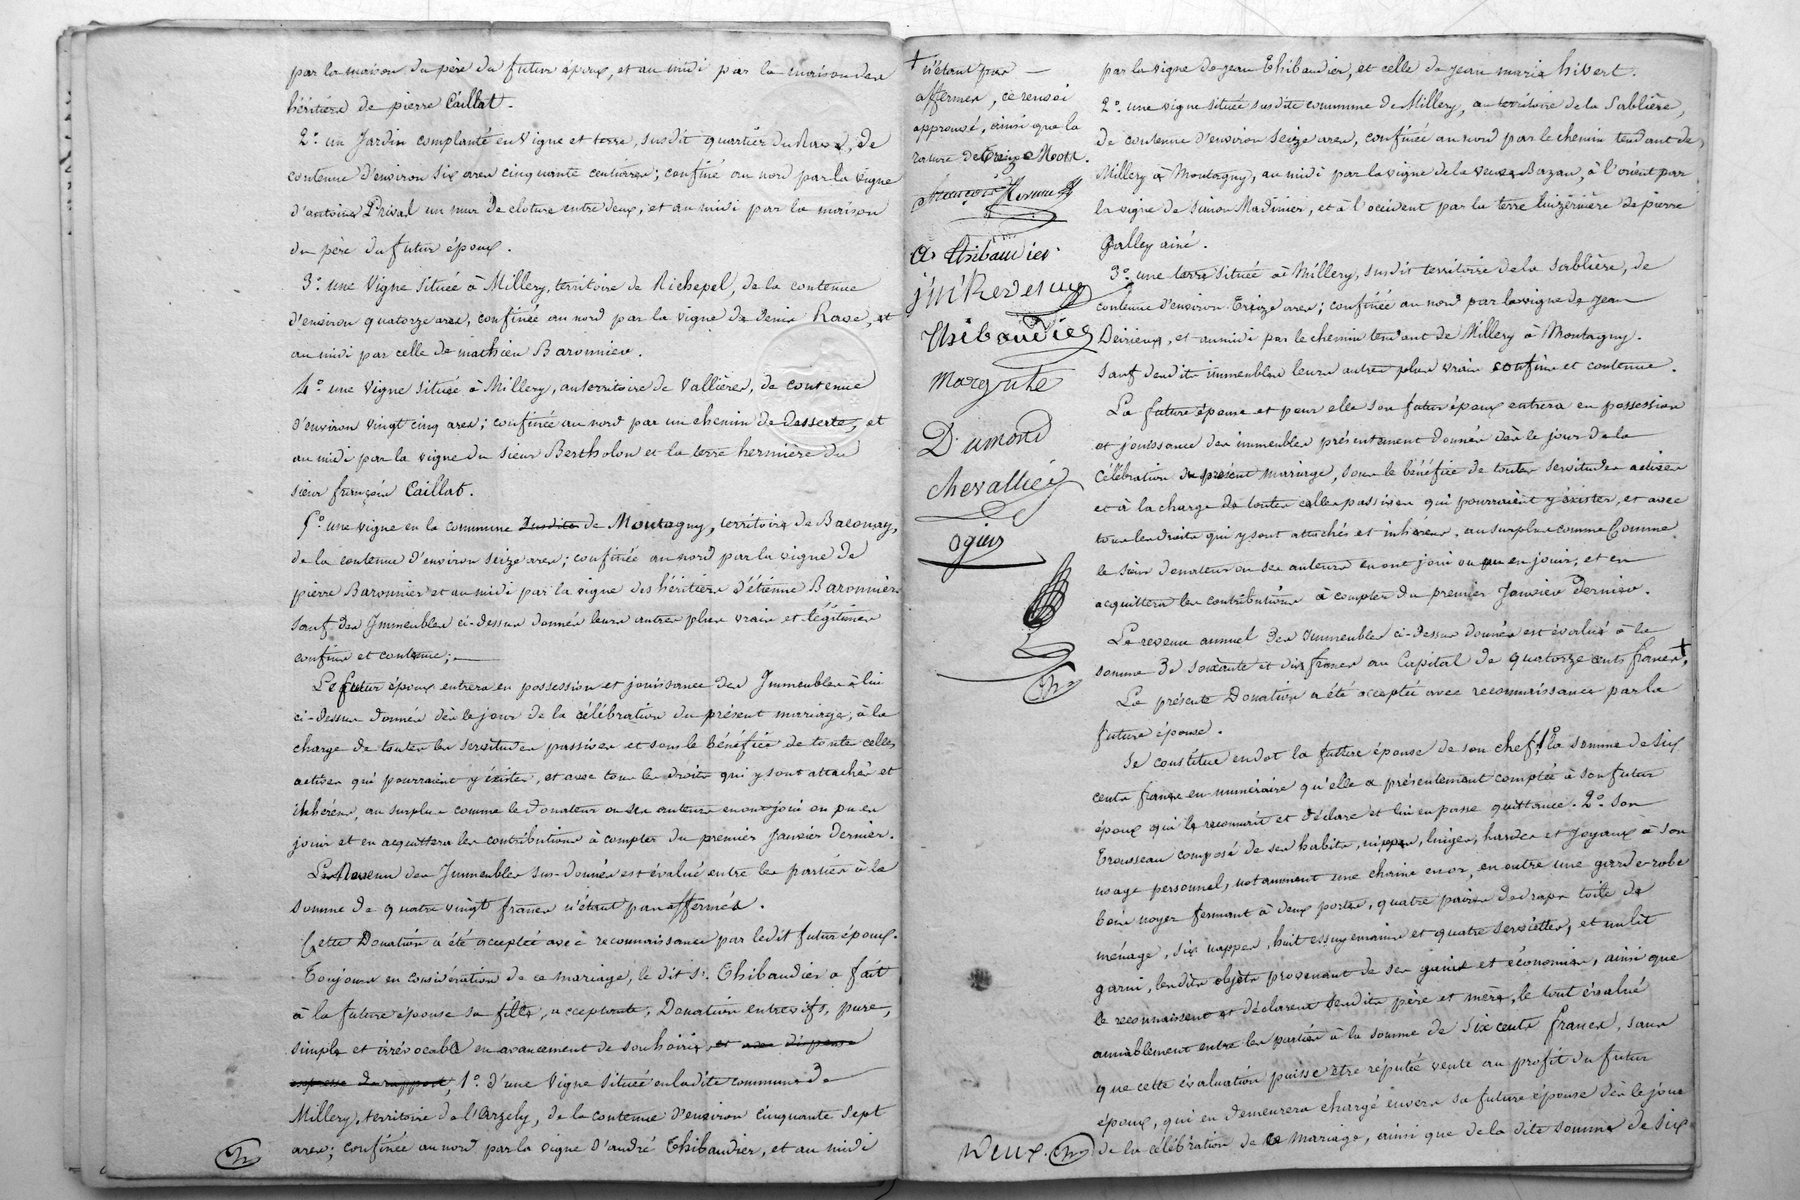 par la maison du père du futur époux, et au midi par la maison des
héritiers de pierre Caillat.
2.° un Jardin complanté en Vigne et terre, susdit quartier du , de
contenue d'environ six ares cinquante centiares; confiné au nord par la vigne
d'antoine Prival un mur de cloture entre deux, et au midi par la maison
du père du futur époux.
3.° une Vigne située à Millery, territoire de Richepel, de la contenue
d'environ quatorze ares, confinée au nord par la vigne de denis Rave, et
au midi par celle de mathieu Baronnier.
4.° une vigne située à Millery, au territoire de Vallières, de contenue
d'environ vingt cinq ares; confinée au nord par un chemin de desserte, et
au midi par la vigne du sieur Bertholon et la terre hermière du
sieur françois Caillat.
5.° une vigne en la commune susdite de Montagny, territoire de Balonay,
de la contenue d'environ seize ares; confinée au nord par la vigne de
pierre Baronnier et au midi par la vigne des héritiers d'étienne Baronnier
sauf des Immeubles ci-dessus donnés leurs autres plus vrais et légitimes
confins et contenue;
Le futur époux entrera en possession et jouissance des Immeubles à lui
ci-dessus donnés dès le jour de la célébration du présent mariage, à la
charge de toutes les servitudes passives et sous le bénéfice de toute celles
actives qui pourraient y éxister, et avec tous les droits qui y sont attachés et
inhérens, au surplus comme le donateur ou ses auteurs en ont joui ou pu en
jouir et en acquittera les contributions à compter du premier Janvier dernier.
Le Revenu des Immeubles sus-donnés est évalué entre les parties à la
somme de quatre vingt francs n'étant pas affermés.
Cette Donation a été acceptée avec reconnaissance par ledit futur époux.
Toujours en considération de ce mariage, le dit Sr. Thibaudier a fait
à la future épouse sa fille, acceptante, Donation entrevifs, pure,
simple et irrévocable en avancement de son hoirie, et avec dispense
expresse de rapport, 1.° d'une Vigne située en ladite commune de
Millery, territoire de l'Arzely, de la contenue d'environ cinquante sept
ares; confinée au nord par la vigne d'andré Thibaudier, et au midi
+ n'étant pas
affermés, ce renvoi
approuvé, ainsi que la
rature de treize Mots.
françois
A Thibaudier
Thibaudier
Dumond
Chevallier
Ogier
par la vigne de jean Thibaudier, et celle de jean marie hivert.
2.° une vigne située susdite commune de Millery, au territoire de la Sablière,
de contenue d'environ seize ares, confinée au nord par le chemin tendant de
Millery à Montagny, au midi par la vigne de la veuve Bazan, à l'orient par
la vigne de Simon Madinier, et à l'occident par la terre luzernière de pierre
Galley ainé.
3.° une terre située à Millery, susdit territoire de la sablière, de
contenue d'environ treize ares; confinée au nord par la vigne de jean
Deirieux, et au midi par le chemin tendant de Millery à Montagny.
Sauf desdits immeubles leurs autres plus vrais confins et contenue.
La future épouse et pour elle son futur époux entrera en possession
et jouissance des immeubles présentement donnés dès le jour de la
célébration du présent mariage, sous le bénéfice de toutes servitudes actives
et à la charge de toutes celles passives qui pourraient y éxister, et avec
tous les droits qui y sont attachés et inhérens, au surplus comme Comme
le sieur donateur ou ses auteurs en ont joui ou pu en jouir, et en
acquittera les contributions à compter du premier Janvier Dernier.
Le revenu annuel des Immeubles ci-dessus donnés est évalué à la
somme de soixante et dix francs au Capital de quatorze cents francs +.
La présente Donation a été acceptée avec reconnaissance par la
future épouse.
Se constitue en dot la future épouse de son chef, 1.° la somme de six
cents francs en numéraire qu'elle a présentement comptée à son futur
époux qui le reconnait et déclare et lui en passe quittance. 2.° Son
Trousseau composé de ses habits, nippes, linges, hardes et Joyaux à son
usage personnel, notamment une chaine en or, en outre une garde-robe
bois noyer fermant à deux portes, quatre paires de draps toile de
ménage, six nappes, huit essuyemains et quatre serviettes, et un lit
garni, lesdits objets provenant de ses gains et économies, ainsi que
le reconnaissent et déclarent sesdits père et mère, le tout évalué
amiablement entre les parties à la somme de Six cents francs, sans
que cette évaluation puisse être réputée vente au profit du futur
époux, qui en demeurera chargé envers sa future épouse dès le jour
de la célébration de ce mariage, ainsi que de la dite somme de six
Deux.